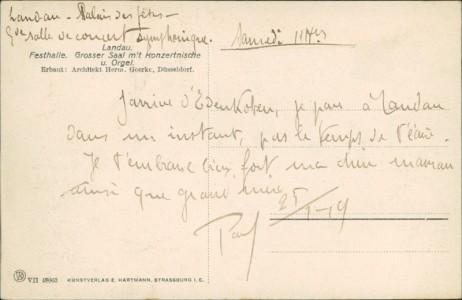 Landau - Palais des fêtes -
Gde salle de concert symphonique. Samedi 11 Hrs
Landau.
Festhalle. Grosser Saal mit Konzertnische
u. Orgel.
Erbaut: Architekt Herm. Goerke, Düsseldorf.
J'arrive d'Edenkoben, je pars à Landau
dans un instant, pas le temps de t'écrire.
Je t'embrasse bien fort ma chère maman
ainsi que grand mère
25-1-19
Paul
VII KUNSTVERLAG E. HARTMANN, STRASSBURG I. E.